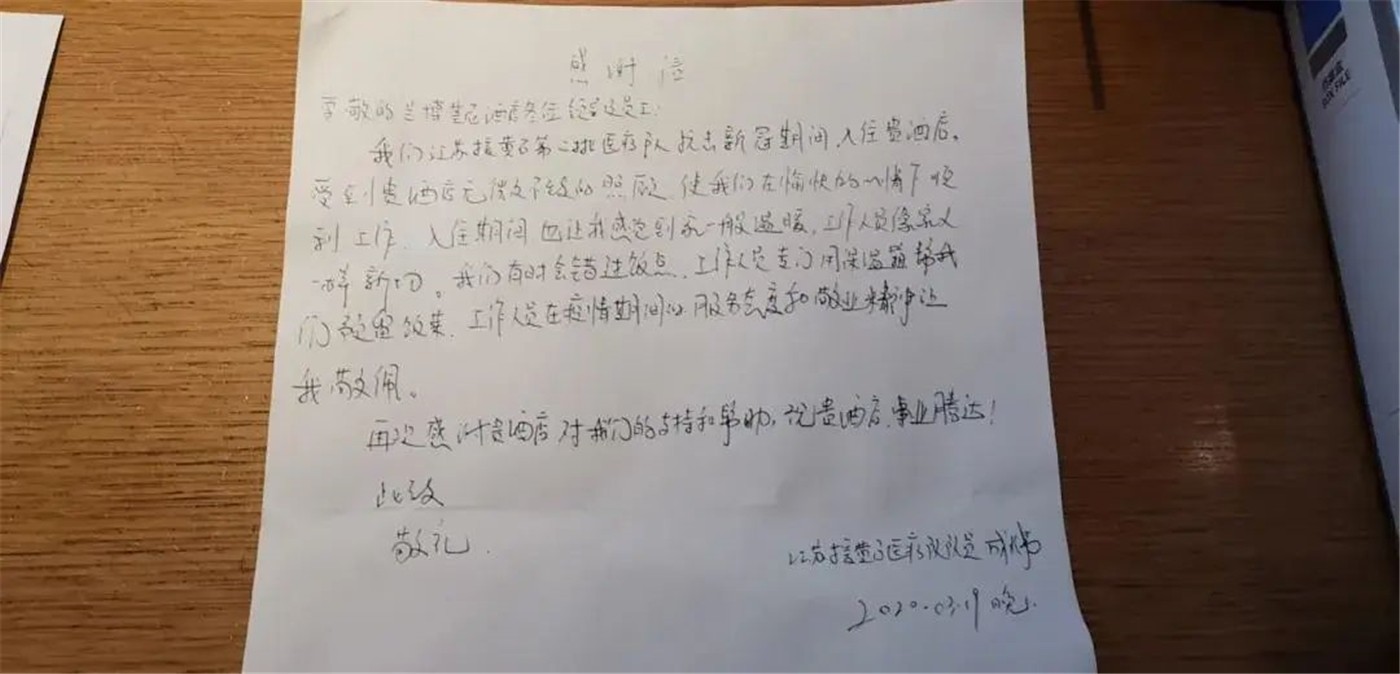 感谢信
尊敬的兰博基尼酒店各位领导及员工:
我们江苏援黄石第二批医疗队抗击新冠期间,入住贵酒店,
受到贵酒店无微不至的照顾,使我们在愉快的心情下顺
利工作,入住期间也让我感觉到家一般温暖,工作人员像家人
一样亲切。我们有时会错过饭点,工作人员专门用保温箱帮我
们预留饭菜,工作人员在疫情期间的服务态度和敬业精神让
我敬佩。
再次感谢贵酒店对我们的支持和帮助,祝贵酒店事业腾达!
此致
敬礼.
江苏援黄石医疗队队员 成
2020.03.19晚.
BOX FILE